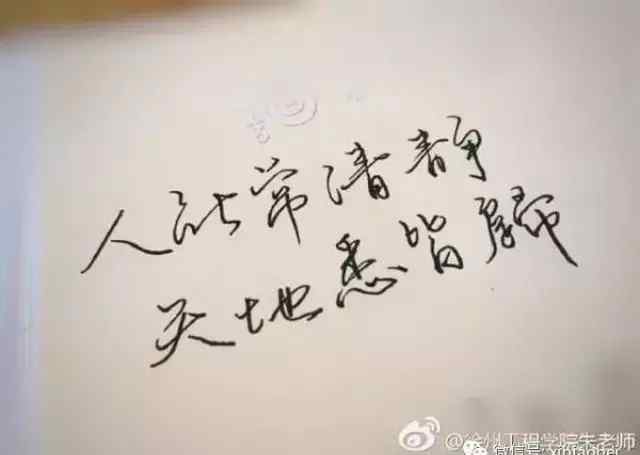 人能常清静
天地悉皆歸
@徐州工程学院朱老师
微信号: xihiaobei